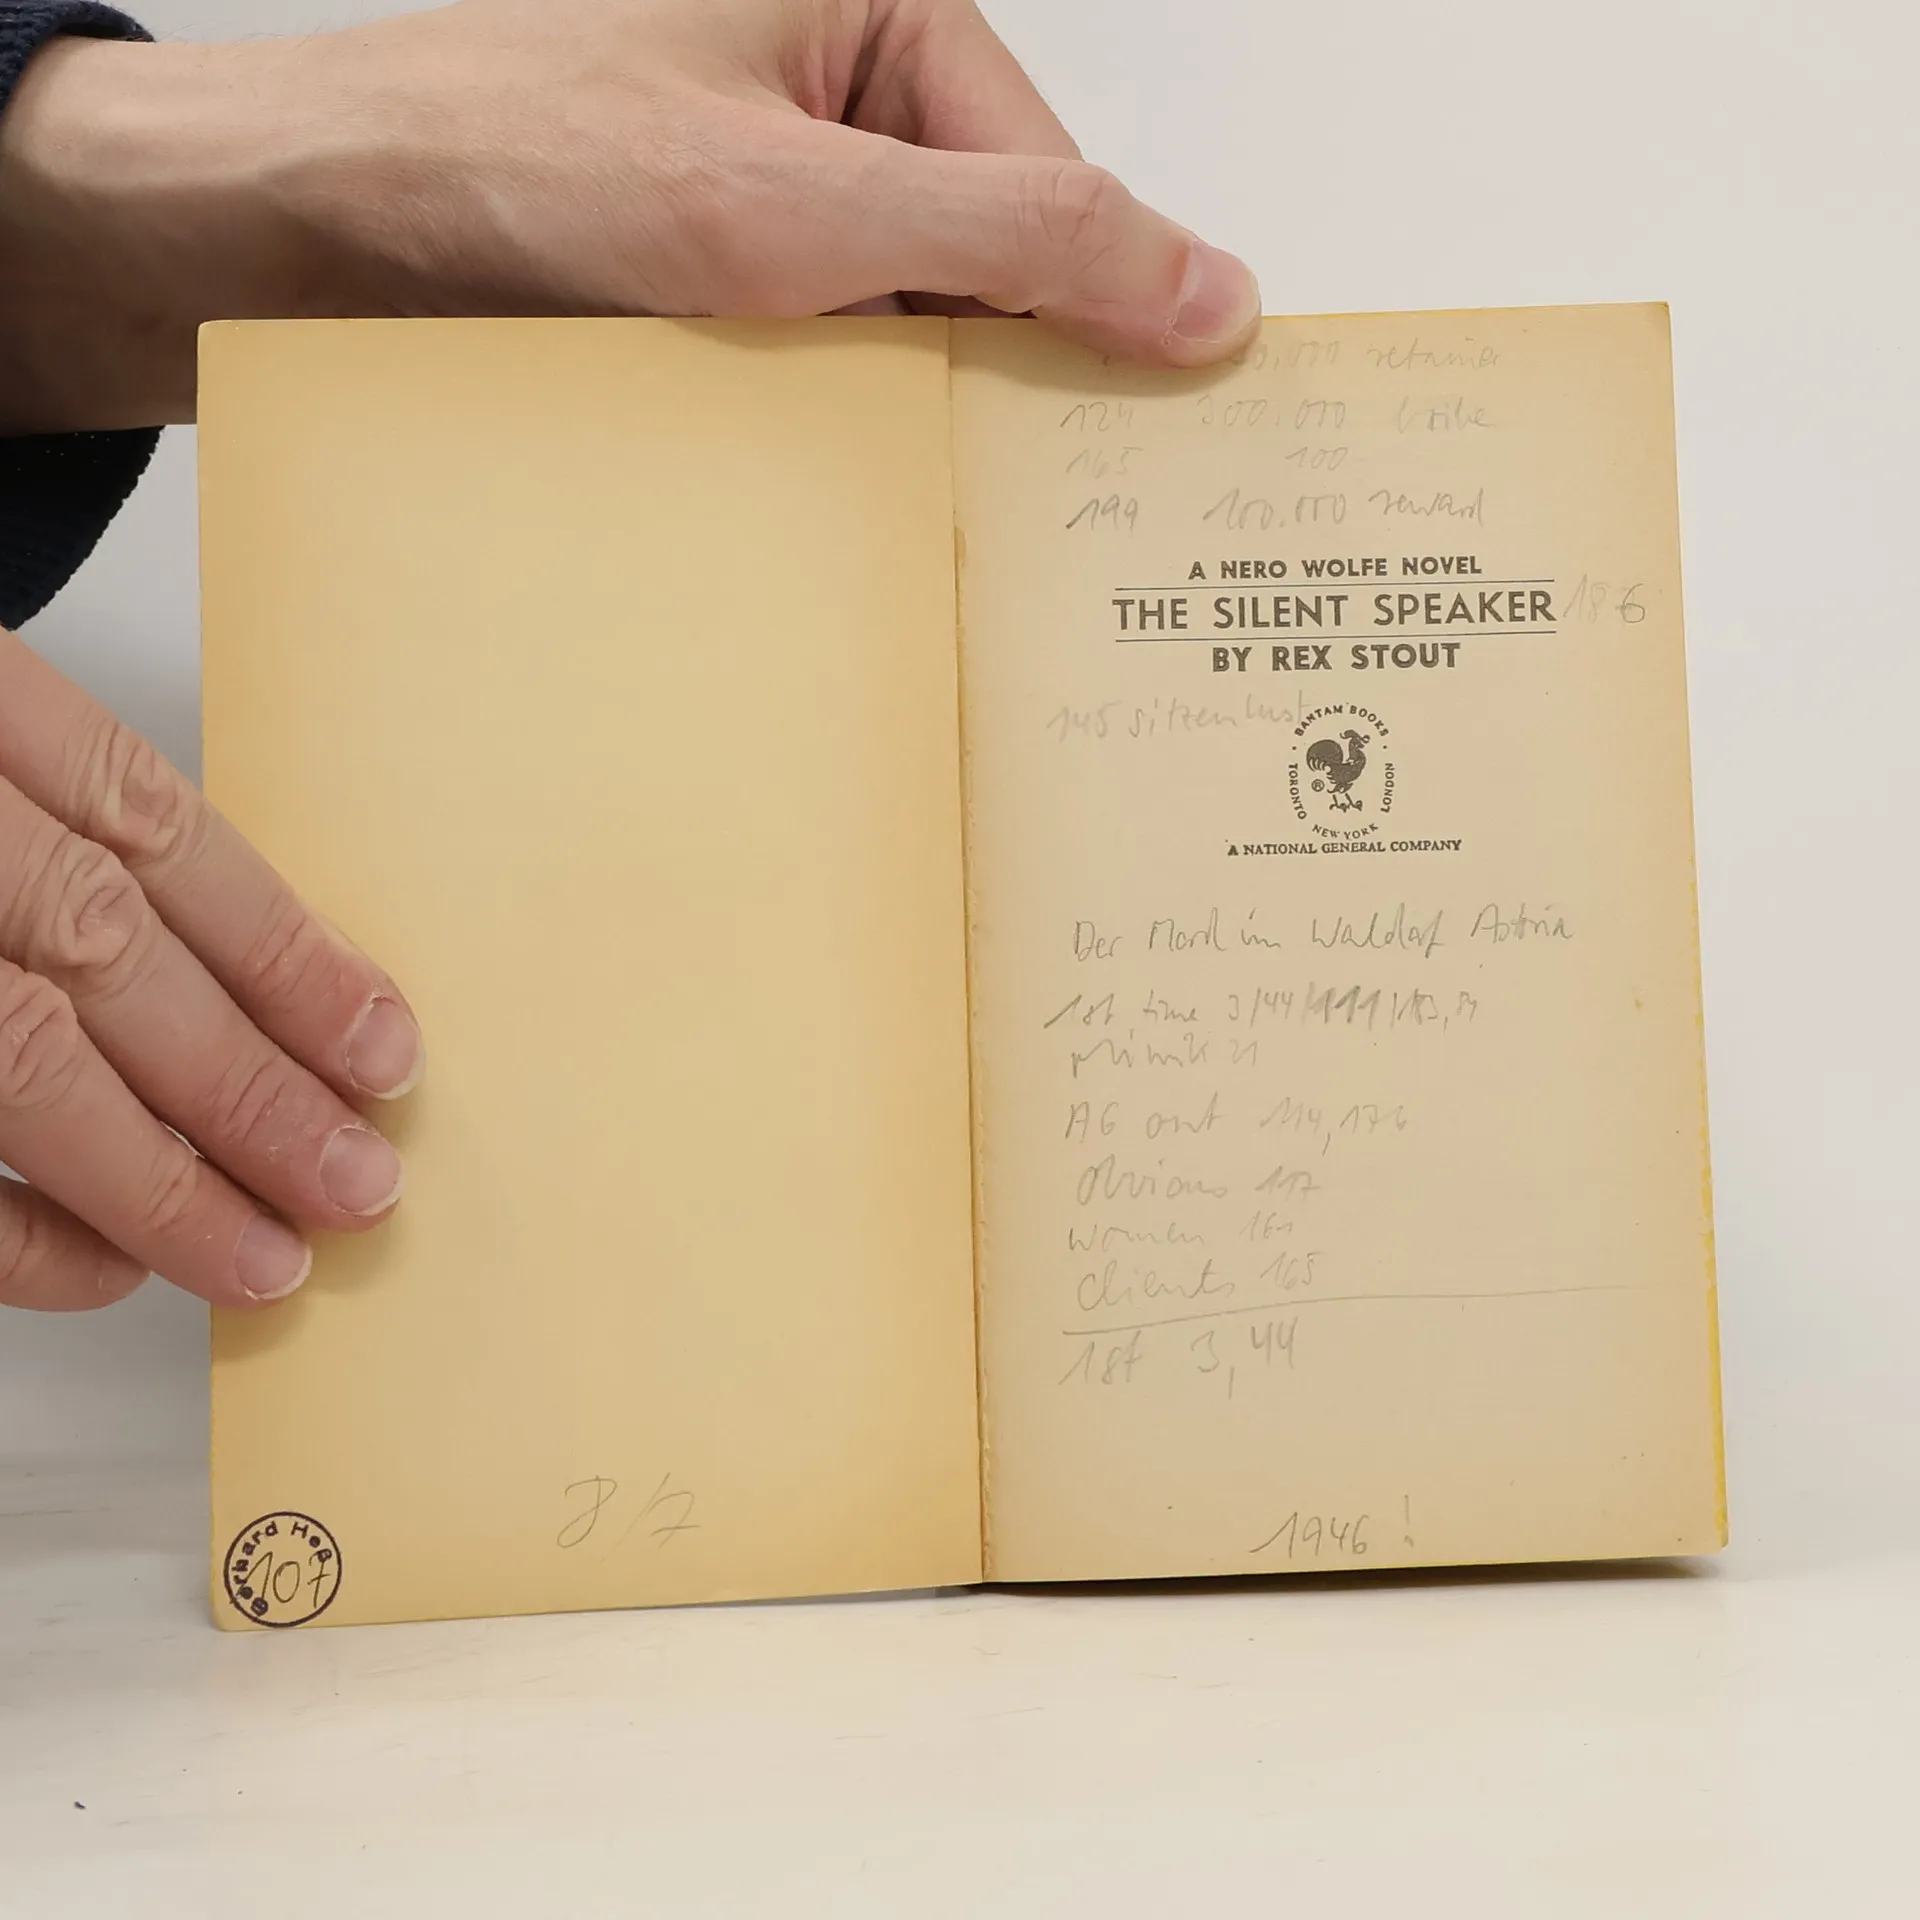 8/7
Gerhard Heß
107
retainer
124 300.000 bribe
165 100
199 100.000 reward
A NERO WOLFE NOVEL
THE SILENT SPEAKER
BY REX STOUT
145 sitzenlust
BANTAM BOOKS
TORONTO NEW YORK LONDON
®
A NATIONAL GENERAL COMPANY
Der Mord im Waldorf Astoria
1st time 3/44/111/
21
AG out 114, 176
Obvious 117
women 161
Clients 165
1st 3, 44
1946!